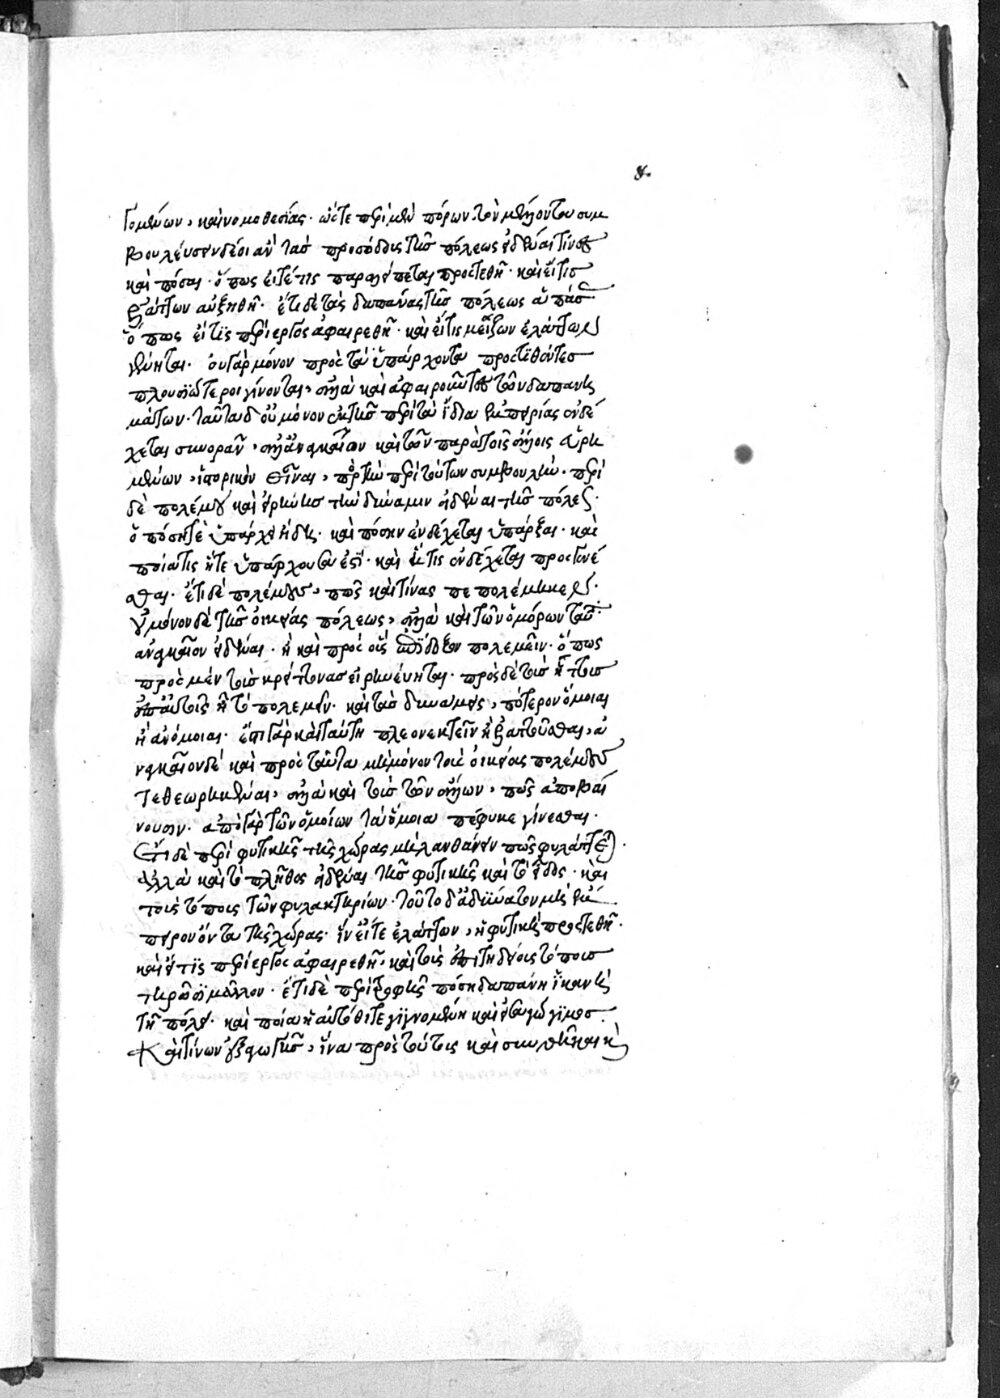 γομένων, καὶ νομοθεσίας. ὥστε περὶ μὲν πόρων τὸν μέλλοντα συμ
βουλεύσειν δέοι ἂν τὰς προσόδους τῆς πόλεως εἰδέναι τίνες
καὶ πόσαι. ὅπως εἴτέ τις παραλείπεται προστεθῇ. καὶ εἴ τις
ἐλάττων αὐξηθῇ. ἔτι δὲ τὰς δαπάνας τῆς πόλεως ἁπάσας
ὅπως εἴ τις περίεργος ἀφαιρεθῇ. καὶ εἴ τις μείζων ἐλάττων
γένηται. οὐ γὰρ μόνον πρὸς τὰ ὑπάρχοντα προστιθέντες
πλουσιώτεροι γίνονται, ἀλλὰ καὶ ἀφαιροῦντες τῶν δαπανη
μάτων. ταῦτα δ' οὐ μόνον ἐκ τῆς περὶ τὰ ἴδια ἐμπειρίας ἐνδέ
χεται συνορᾶν, ἀλλ' ἀναγκαῖον καὶ τῶν παρὰ τοῖς ἄλλοις εὑρη
μένων, ἱστορικὸν εἶναι, πρὸς τὴν περὶ τούτων συμβουλήν. περὶ
δὲ πολέμου καὶ εἰρήνης τὴν δύναμιν εἰδέναι τῆς πόλεως.
ὁπόση τὲ ὑπάρχει ἤδη. καὶ πόσην ἐνδέχεται ὑπάρξαι. καὶ
ποία τις ἥτε ὑπάρχουσα ἐστὶ. καὶ ἥτις ἐνδέχεται προσγενέ
σθαι. ἔτι δὲ πολέμους, πῶς καὶ τίνας πεπολέμηκεν.
οὐ μόνον δὲ τῆς οἰκείας πόλεως, ἀλλὰ καὶ τῶν ὁμόρων ταῦτα
ἀναγκαῖον εἰδέναι. ἢ καὶ πρὸς οὓς ἐπίδοξον πολεμεῖν. ὅπως
πρὸς μὲν τοὺς κρείττονας εἰρηνεύηται. πρὸς δὲ τοὺς ἥττους
ἐπ' αὐτοῖς ᾖ τὸ πολεμεῖν. καὶ τὰς δυνάμεις, πότερον ὅμοιαι
ἢ ἀνόμοιαι. ἔστι γὰρ καὶ ταύτῃ πλεονεκτεῖν ἢ ἐλαττοῦσθαι, ἀ
ναγκαῖον δὲ καὶ πρὸς ταῦτα μὴ μόνον τοὺς οἰκείους πολέμους
τεθεωρηκέναι, ἀλλὰ καὶ τοὺς τῶν ἄλλων, πῶς ἀποβαί
νουσιν. ἀπὸ γὰρ τῶν ὁμοίων τὰ ὅμοια πέφυκε γίνεσθαι.
Ἔτι δὲ περὶ φυλακῆς τῆς χώρας μὴ λανθάνειν πῶς φυλάττεται.
ἀλλὰ καὶ τὸ πλῆθος εἰδέναι τῆς φυλακῆς καὶ τὸ εἶδος. καὶ
τοὺς τόπους τῶν φυλακτηρίων. τοῦτο δ' ἀδύνατον μὴ ἔμ
πειρον ὄντα τῆς χώρας. ἵν' εἴτε ἐλάττων, ἡ φυλακὴ προστεθῇ.
καὶ εἴ τις περίεργος ἀφαιρεθῇ, καὶ τοὺς ἐπιτηδείους τόπους
τηρῶσι μᾶλλον. ἔτι δὲ περὶ τροφῆς πόση δαπάνη ἱκανὴ
τῇ πόλει. καὶ ποία ἡ αὐτόθι τε γιγνομένη καὶ εἰσαγώγιμος.
Καὶ τίνων ἐξαγωγῆς, ἵνα πρὸς τούτους καὶ συνθῆκαι κὰ